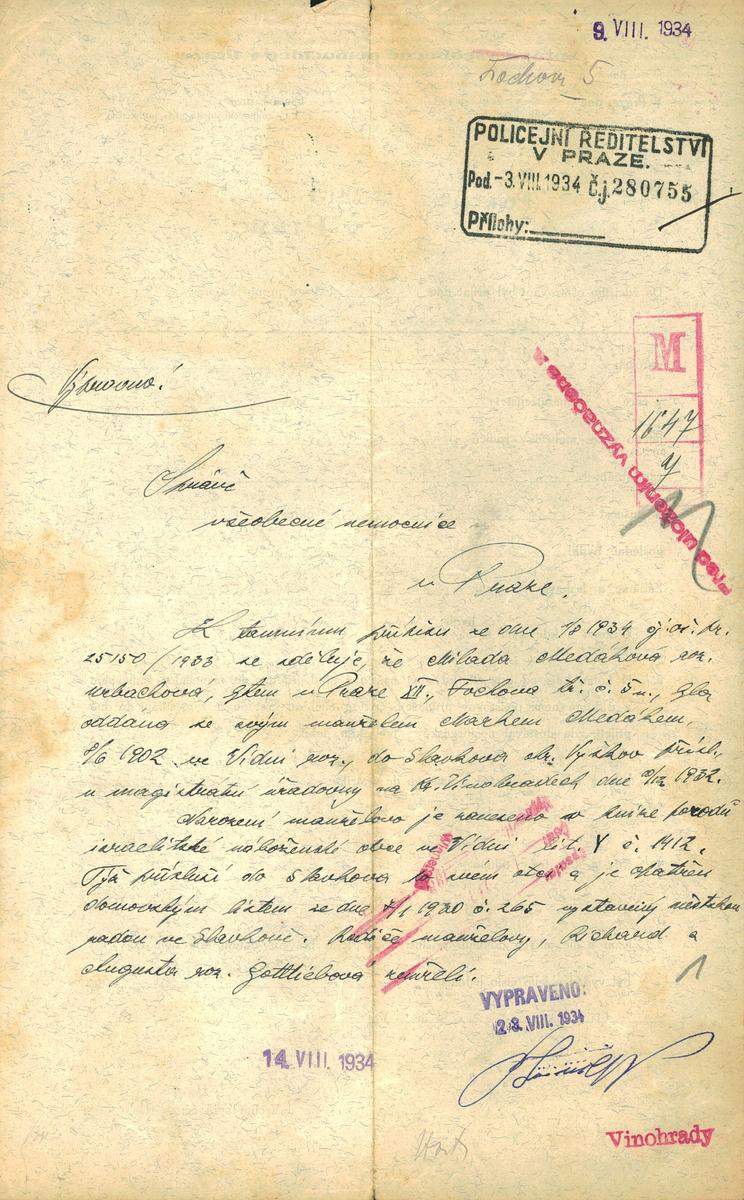 9. VIII. 1934
Fochova 5
POLICEJNÍ ŘEDITELSTVÍ
V PRAZE.
Pod. -3. VIII. 1934 Č.j. 280755
Přílohy:
M
1647
Před uložením vyznačené
Správě
všeobecné nemocnice
v Praze.
K tamnímu přípisu ze dne 1/8 1934 čj. os. pr.
25150/1933 se sděluje, že Milada Medáková roz.
Urbachová, bytem v Praze XII., Fochova tř. č. 5 n., byla
oddána se svým manželem Markem Medákem,
1902 ve Vídni nar., do Slavkova okr. Vyškov přísl.,
v magistrátní úřadovny na Kr. Vinohradech dne 1932.
Narození manželovo je zaneseno v knize porodů
israelitské náboženské obce ve Vídni lit. Y č. 1412.
Týž přísluší do Slavkova po svém otci a je opatřen
domovským listem ze dne 1930 č. 265 vystavený městskou
radou ve Slavkově. Rodiče manželovy, Richard a
Augusta roz. Gottliebová zemřeli.
VYPRAVENO:
23. VIII. 1934
14. VIII. 1934
Vinohrady